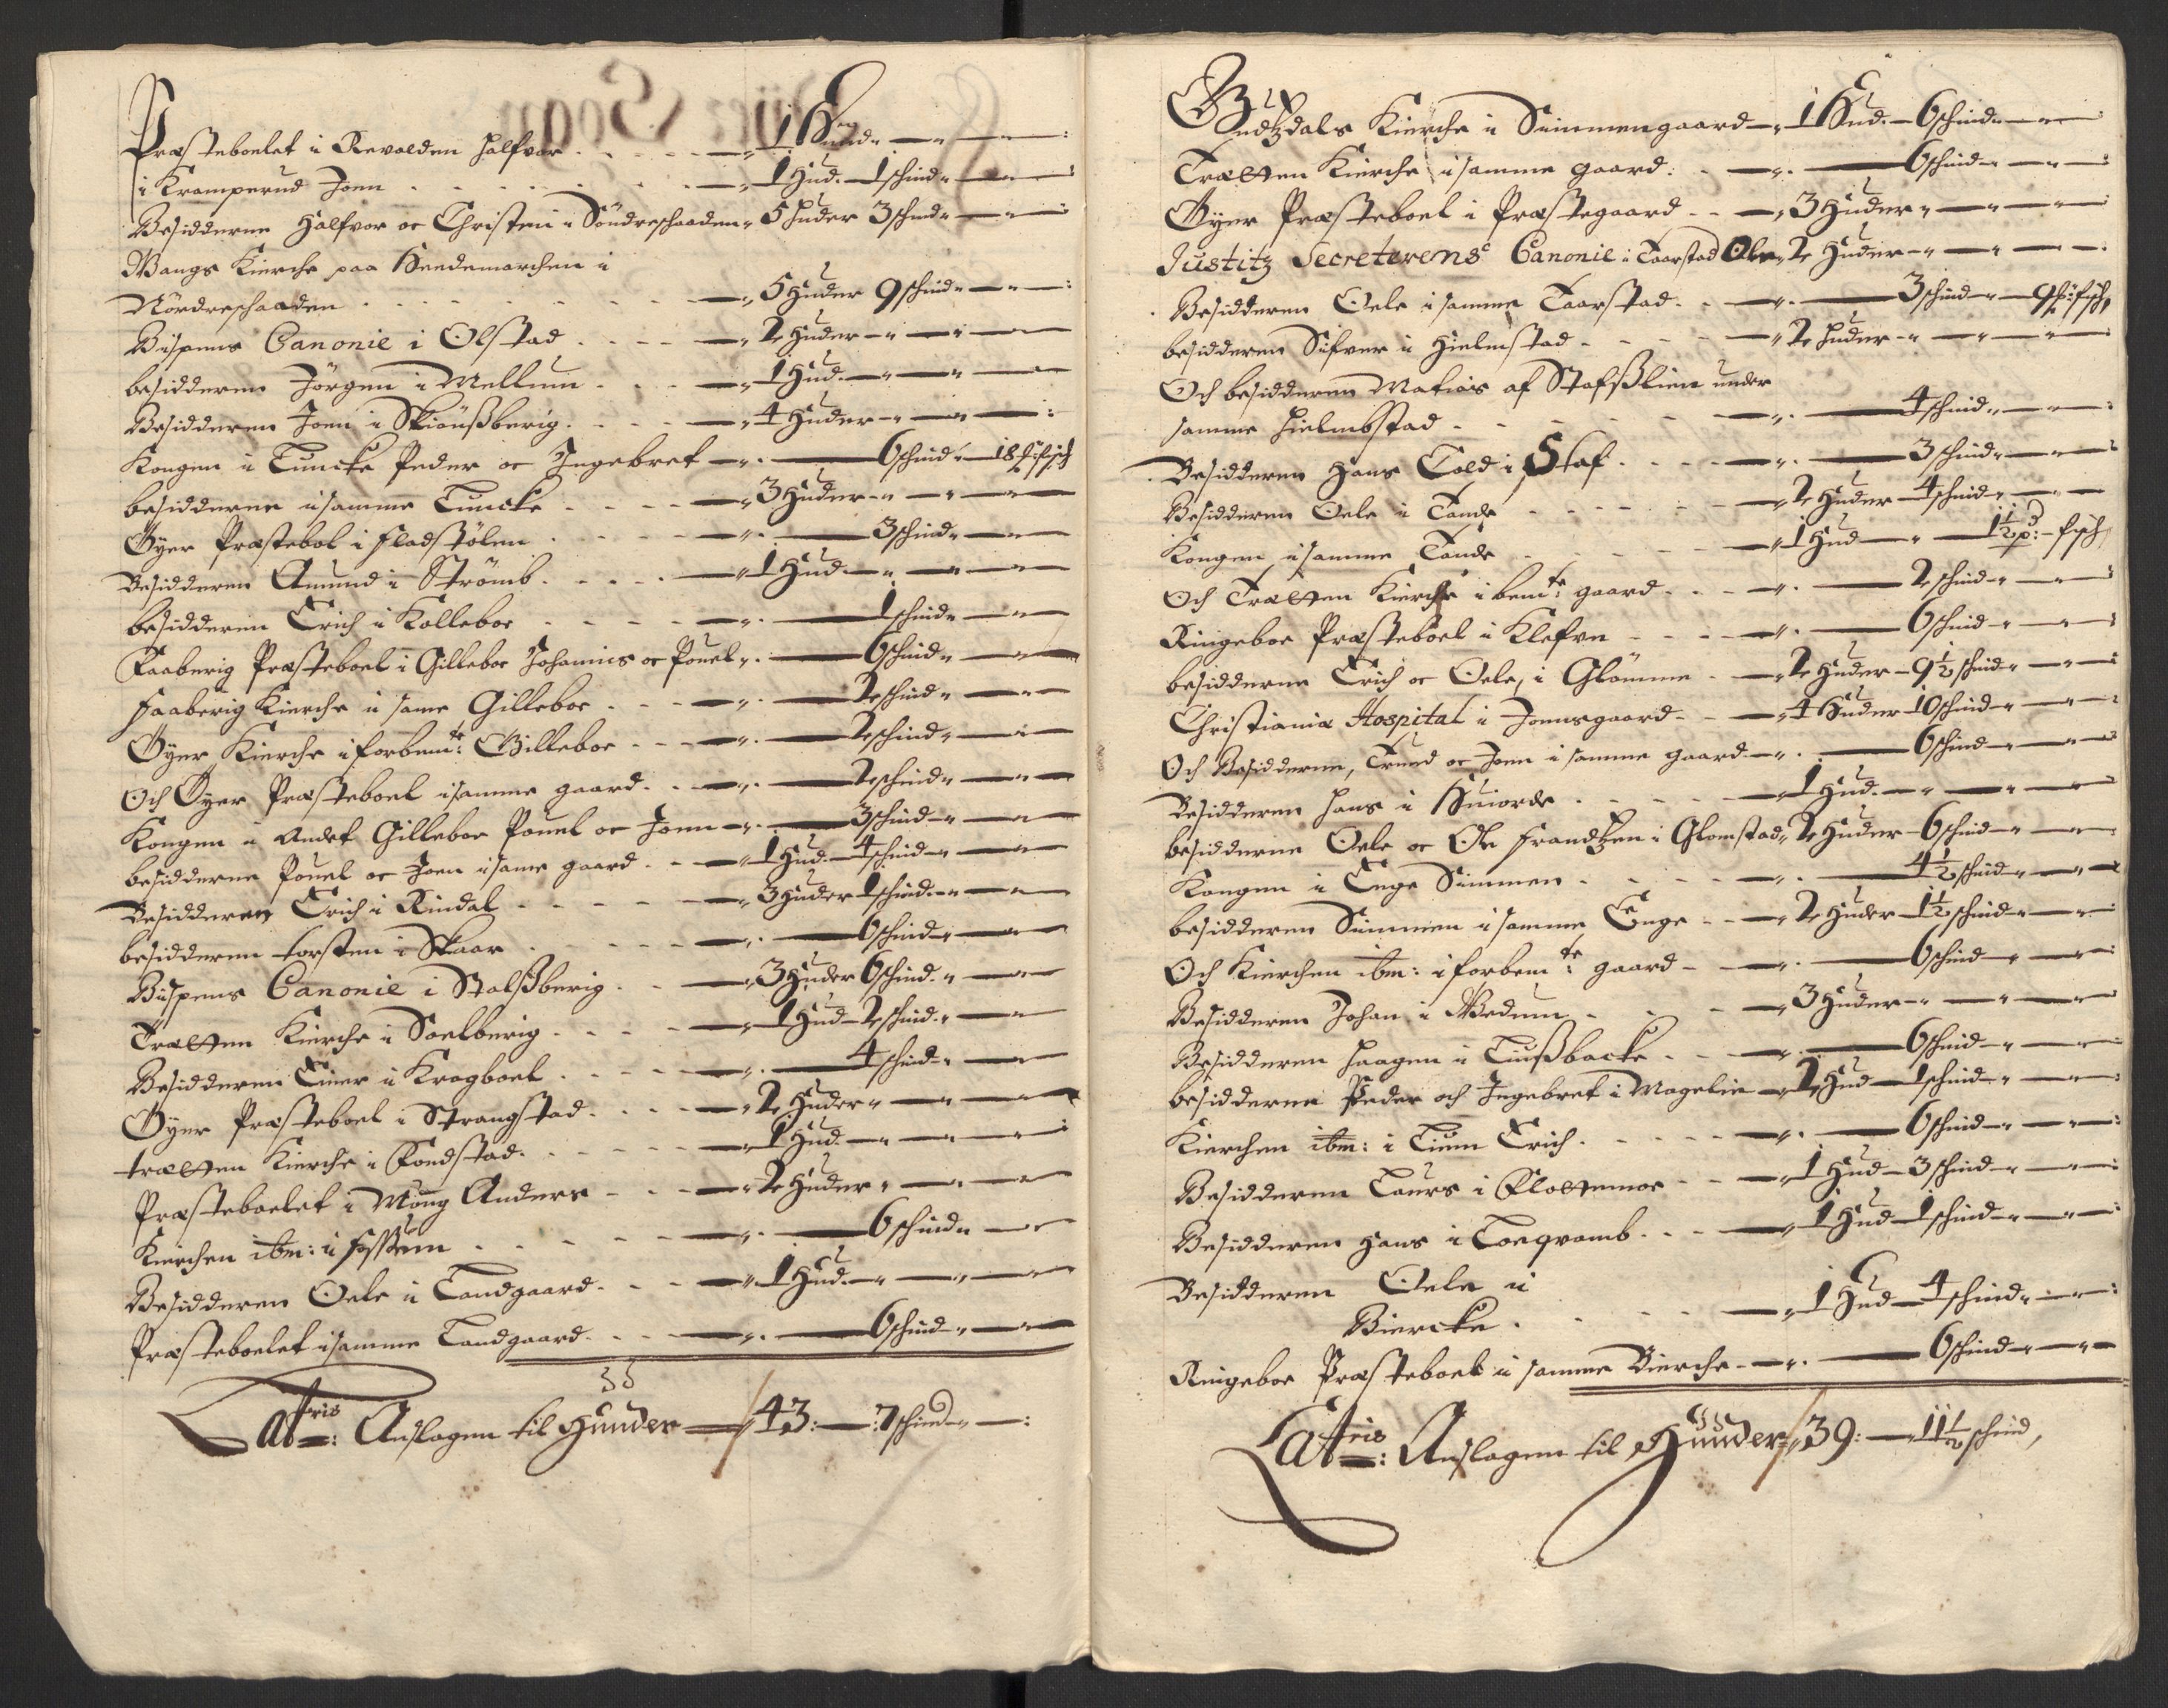 Præsteboelet i Revolden Halfvor - 1 Hud -
i Kramperud Joen - 1 Hud. 1 schind
Besidderne Halfvor oc Christen i Söndreschaaden 5 huder 3 schind
Wangs Kierche paa Heedemarchen i
Nördreschaaden - 5 Huder 9 schind
Bispens Canonie i Olstad - 2 Huder
besidderen Jörgen i Mellum - 1 Hud.
Besidderen Joen i Skiönßberig - 4 Huder
Kongen i Tuncke Peder oc Ingebret - 6 schind 18 fisch
besidderne i samme Tuncke - 3 Huder
Öyer Præstebol i Fladstölen - 3 schind
Besidderen Amund i Strömb - 1 Hud
besidderen Erich i Kolleboe - 1 schind
Faaberig Præsteboel i Gilleboe Johannes oc Pouel - 6 schind
Faaberig Kierche i same Gilleboe - 2 schind
Öyer Kierche i forbemte: Gilleboe - 2 schind
Och Öyer Præsteboel i samme gaard - 2 schind
Kongen i Andet Gilleboe Pouel oc Joen - 3 schind
besidderne Pouel oc Joen i same gaard - 1 Hud. 4 schind
Besidderen Erich i Rindal - 3 Huder 1 schind
besidderen torsten i Skaar - 6 schind
Bispens Canonie i Stalßberig - 3 Huder 6 schind.
Trætten Kierche i Soelberig - 1 Hud 2 schind.
Besidderen Einer i Kragboel - 4 schind
Öyer Præsteboel i Strangstad - 2 Huder
trætten Kierche i Fondstad - 1 Hud.
Præsteboelet i Moug Anders - 2 Huder
Kierchen ibm: i Fossum - 6 schind
Besidderen Oele i Landgaard - 1 Hud.
Præsteboelet i samme Landgaard - 6 schind
Latris: Anslagen til Hunder 43: 7 schind
Gudtzdals Kierche i Simmengaard - 1 Hud. 6 schind
Trætten Kierche i samme gaard: - 6 schind
Öyer Præsteboel i Præstegaard - 3 Huder
Justitz Secreterens Canonie i Taarstad Ole 2 Huder
Besidderen Oele i samme Taarstad - 3 schind 9 fisch
besidderen Sifver i Hielmstad - 2 huder
Och besidderen Matias af Stafßlien under
samme Hielmbstad - 4 schind
Besidderen Hans Told i Staf - 3 schind
Besidderen Oele i Tande - 2 Huder 4 schind
Kongen i samme Tande - 1 Hud 1½ p: fisch
Och Trætten Kierche i bemte: gaard - 2 schind
Ringeboe Præsteboel i Klefve - 6 schind
besidderne Erich oc Oele, i Glömme - 2 Huder 9½ schind
Christiania Hospital i Joensgaard - 4 Huder 10 schind
Och Besidderne, Trund oc Joen i samme gaard - 6 schind
Besidderen Hans i - 1 Hud.
besidderne Oele oc Ole Frandtzen i Glomstad 2 Huder 6 schind
Kongen i Enge Simmen - 4½ schind
besidderen Simmen i samme Enge - 2 Huder 1½ schind
Och Kierchen ibm: i forbemte: gaard - 6 schind
Besidderen Johan i Wedum - 3 Huder
Besidderen Haagen i Tiußbacke - 6 schind
besidderne Peder och Ingebret i Magelie - 1 Hud 1 schind
Kierchen ibm: i Tium Erich - 6 schind
Besidderen Laurs i Flottemoe - 1 Hud 3 schind
Besidderen Hans i Torgvamb - 1 Hud 1 schind
Besidderen Oele i
Biercke - 1 Hud 4 schind
Ringeboe Præsteboel i samme Bierche - 6 schind
Latris: Anslagen til Hunder 39: 11½ schind,